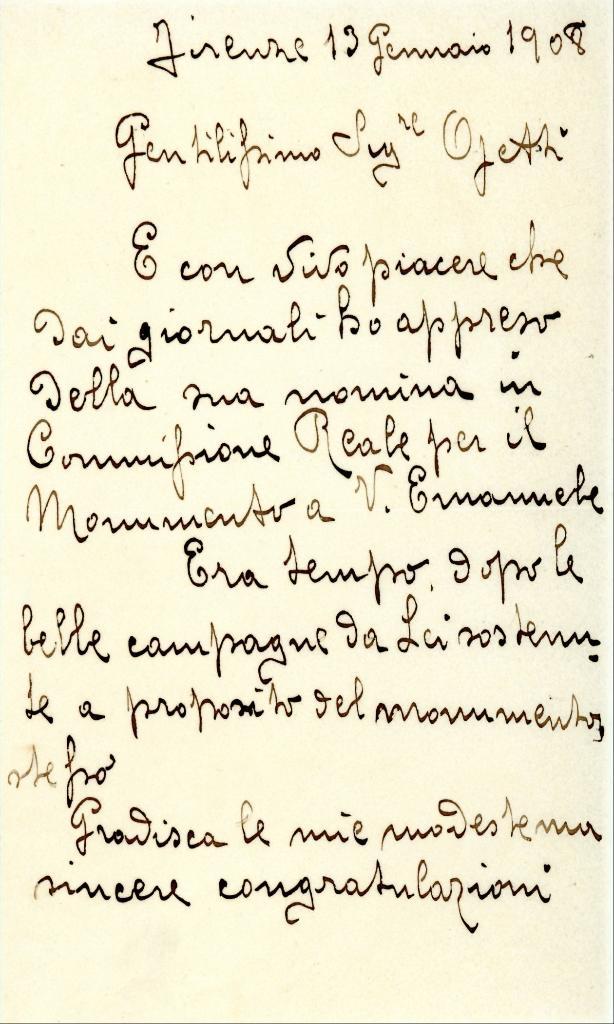 Firenze 13 Gennaio 1908
Gentilissimo Sigre Ojetti
E con vivo piacere che
dai giornali ho appreso
della sua nomina in
Commissione Reale per il
Monumento a V. Emanuele
Era tempo, dopo le
belle campagne da Lei sostenu-
te a proposito del monumento,
stesso
Gradisca le mie modeste ma
sincere congratulazioni